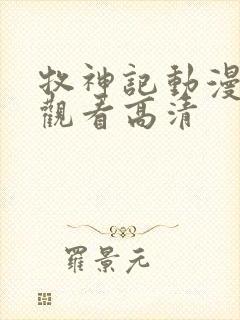 牧神記動漫
觀看高清
羅景元